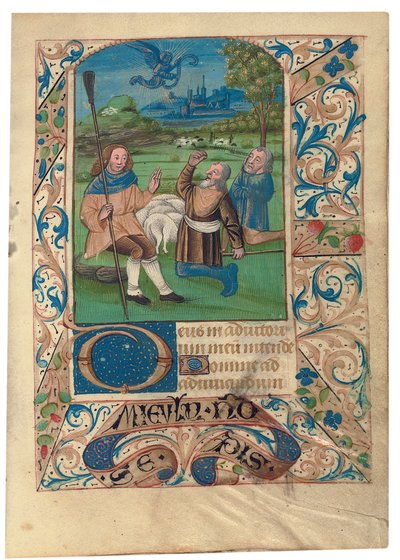 Deus in adiutori
um meū intende
Domine ad
adiuuandum
SE · PIS ·